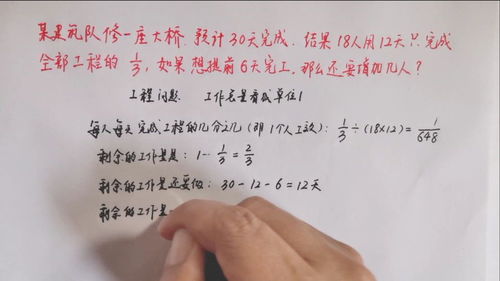 某工程队修一座大桥.预计30天完成.结果18人用12天只完成
全部工程的 1/3,如果想提前6天完工.那么还要增加几人?
工程问题 工作总量看成单位1
每人每天完成工程的几分之几(即1个人工效): 1/3÷(18×12)=1/648
剩余的工作量是: 1-1/3=2/3
剩余的工作量还要做: 30-12-6=12天
剩余的工作量